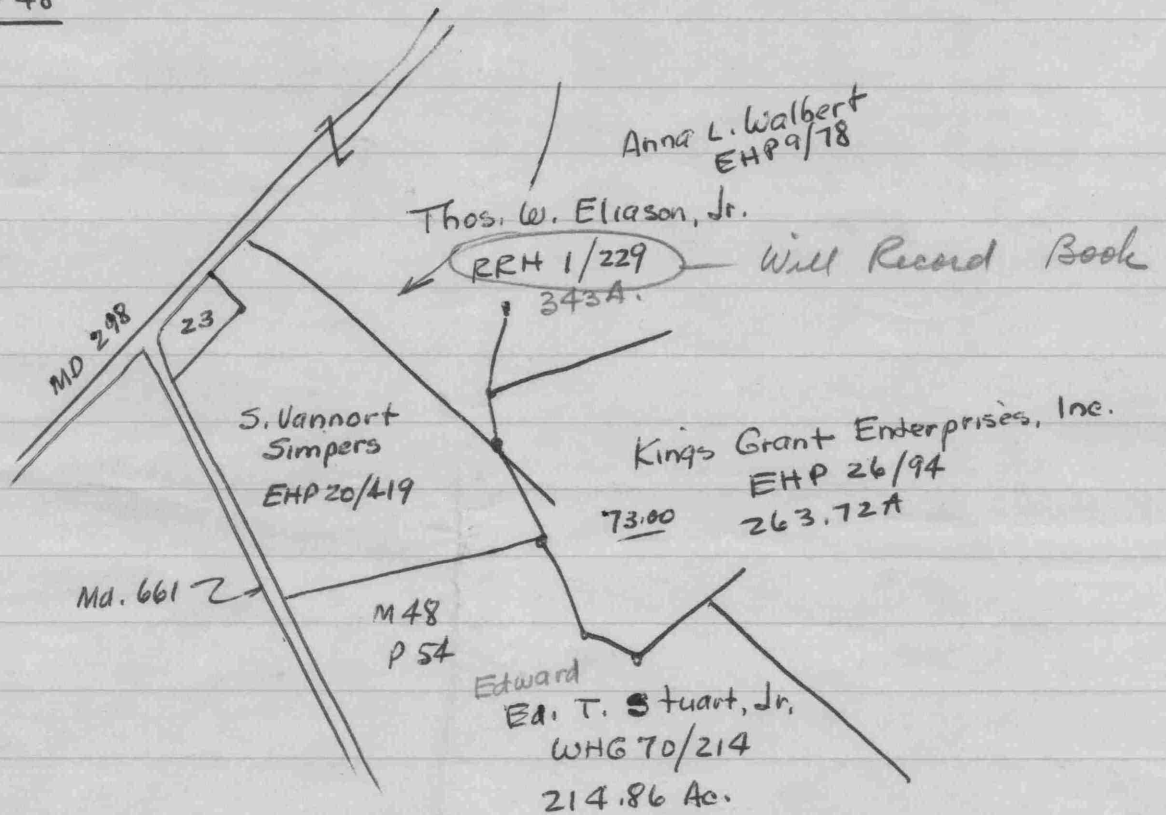 48
Anna L. Walbert
EHP 9/78
Thos. W. Eliason, Jr.
RRH 1/229 — Will Record Book
343A.
MD 298
23
S. Vannort
Simpers
EHP 20/419
Kings Grant Enterprises, Inc.
EHP 26/94
263.72A
73.00
Md. 661
M 48
P 54
Edward
Ed. T. Stuart, Jr.
WHG 70/214
214.86 Ac.